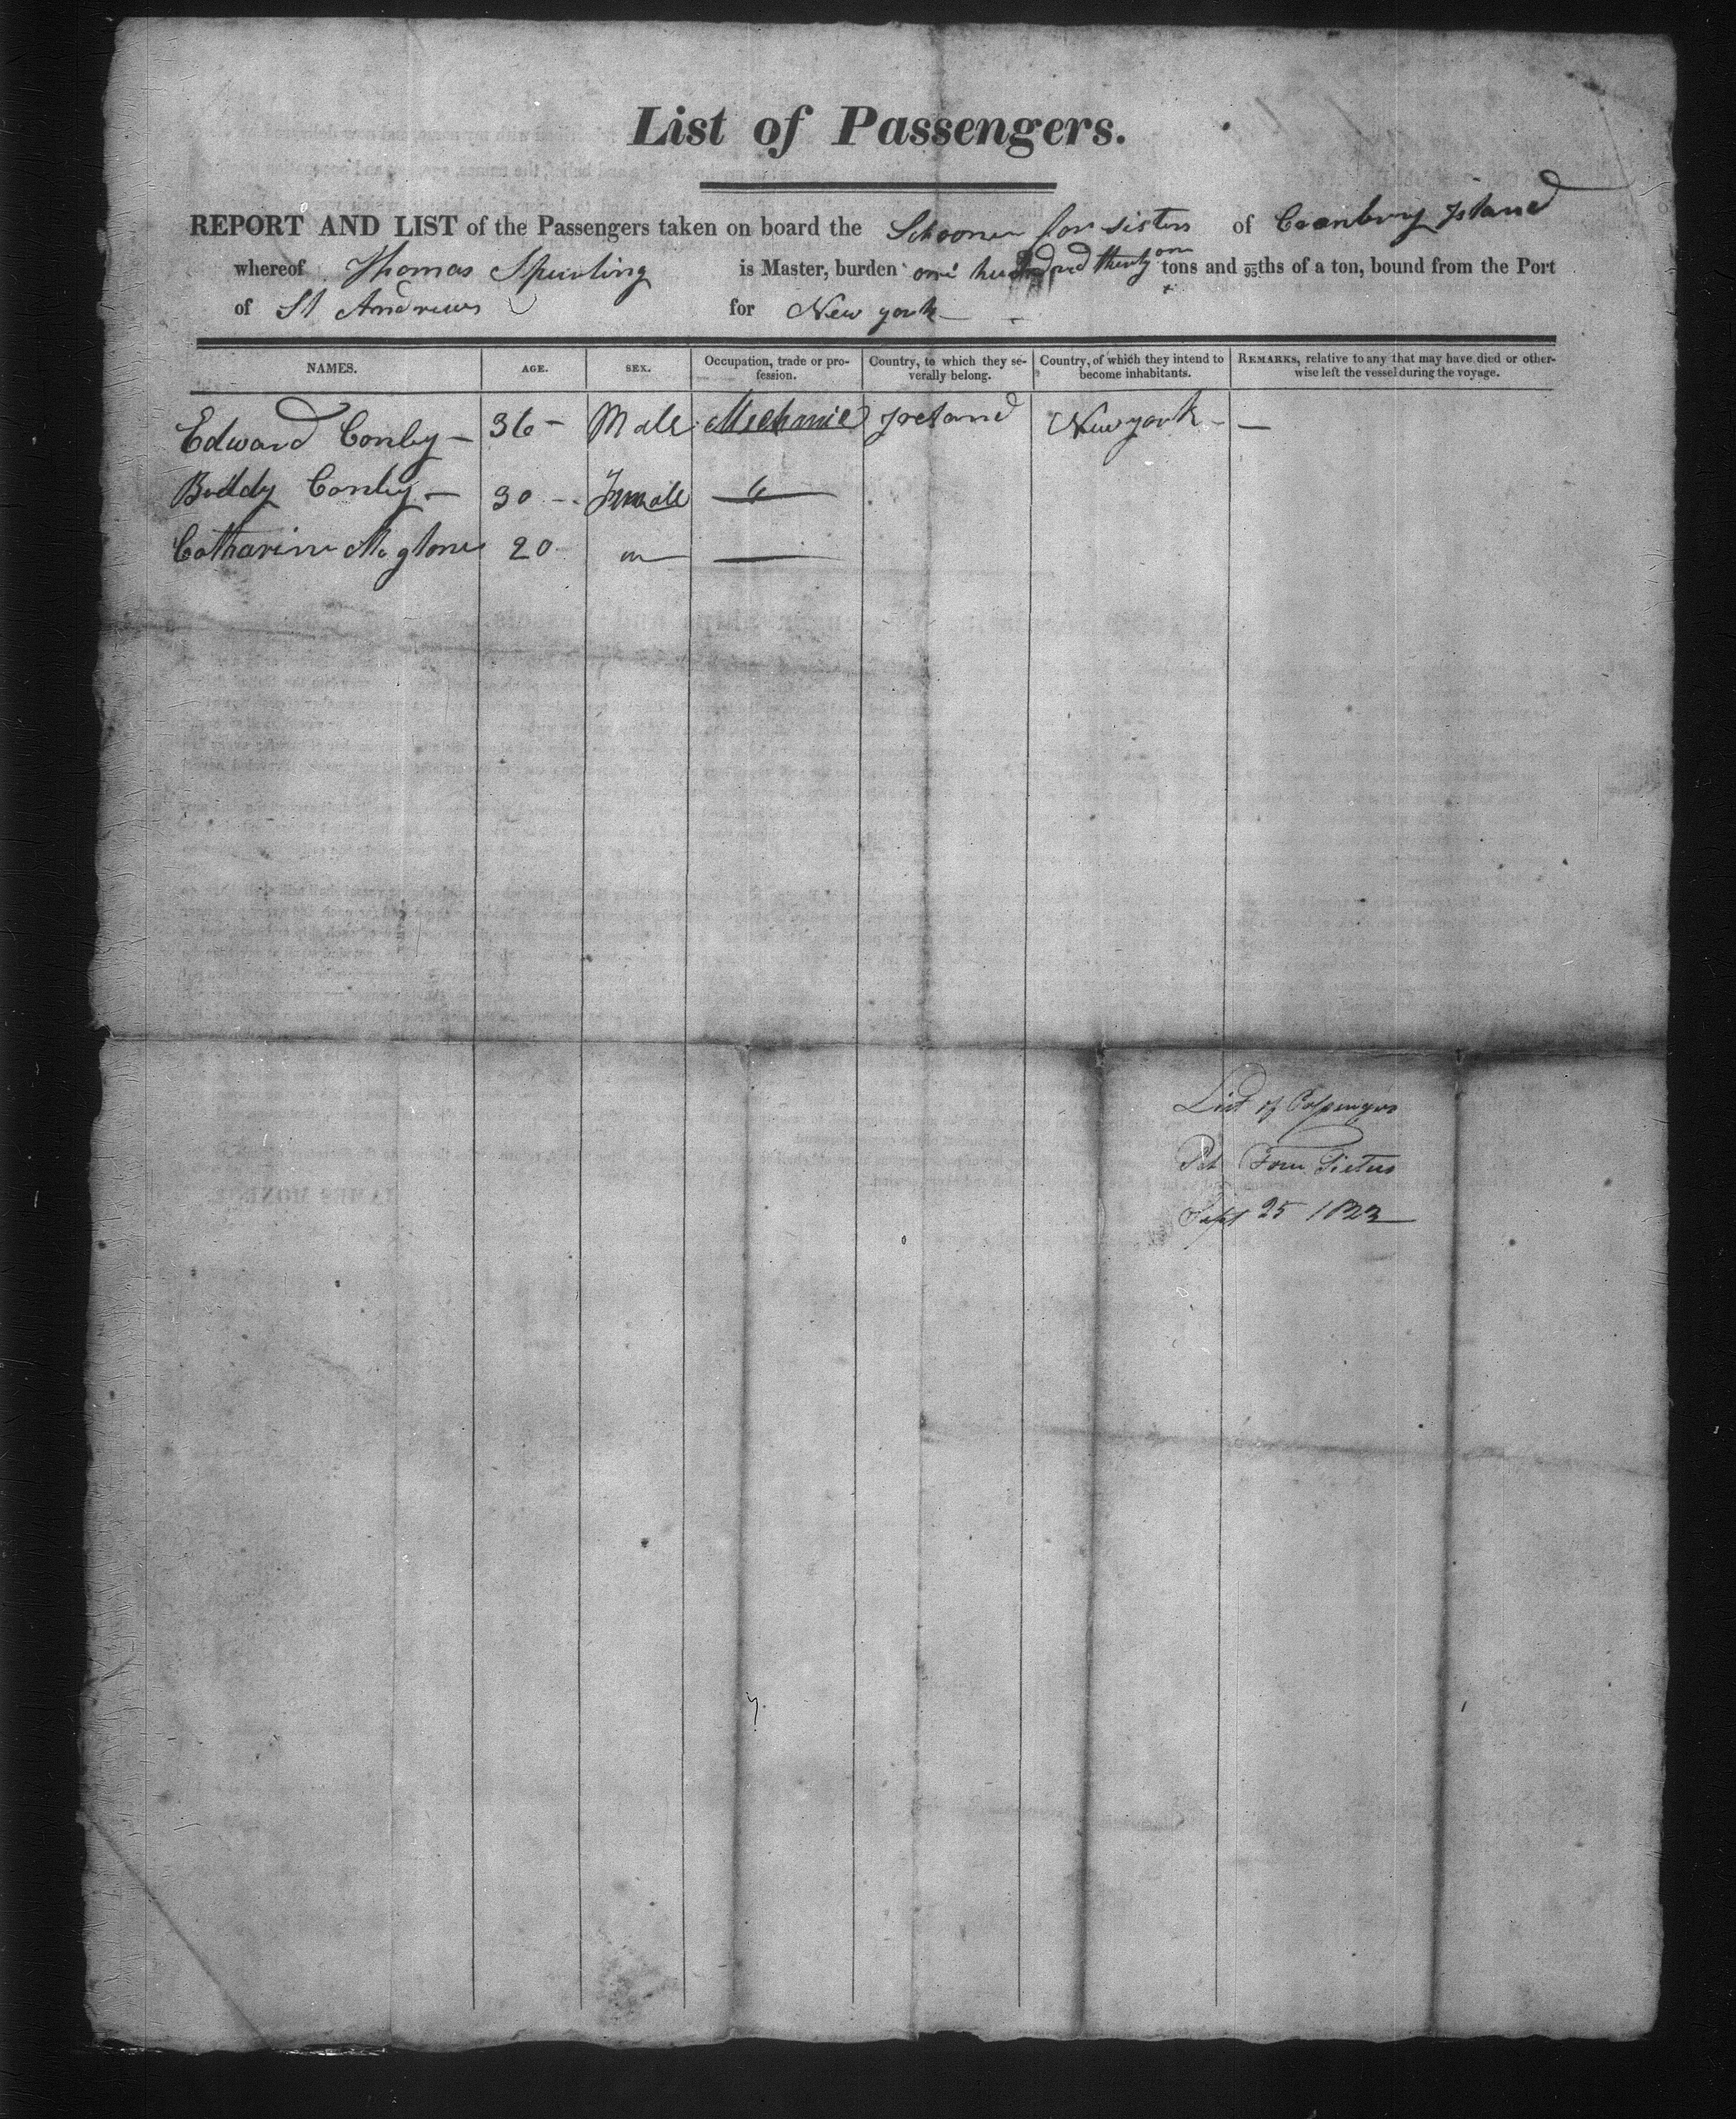 List of Passengers.
REPORT AND LIST of the Passengers taken on board the Schooner for sisters of Cranbury Island
whereof Thomas Spurling is Master, burden one hundred thirty one tons and 95ths of a ton, bound from the Port
of St Andrews for New york
NAMES. AGE. SEX. Occupation, trade or profession. Country, to which they severally belong. Country, of which they intend to become inhabitants. REMARKS, relative to any that may have died or otherwise left the vessel during the voyage.
Edward Conley — 36 — Male Mechanic Ireland New york — —
Biddy Conley — 30 — Female
Catharine 20
List of Passengers
Four Sisters
Sept 25 1822